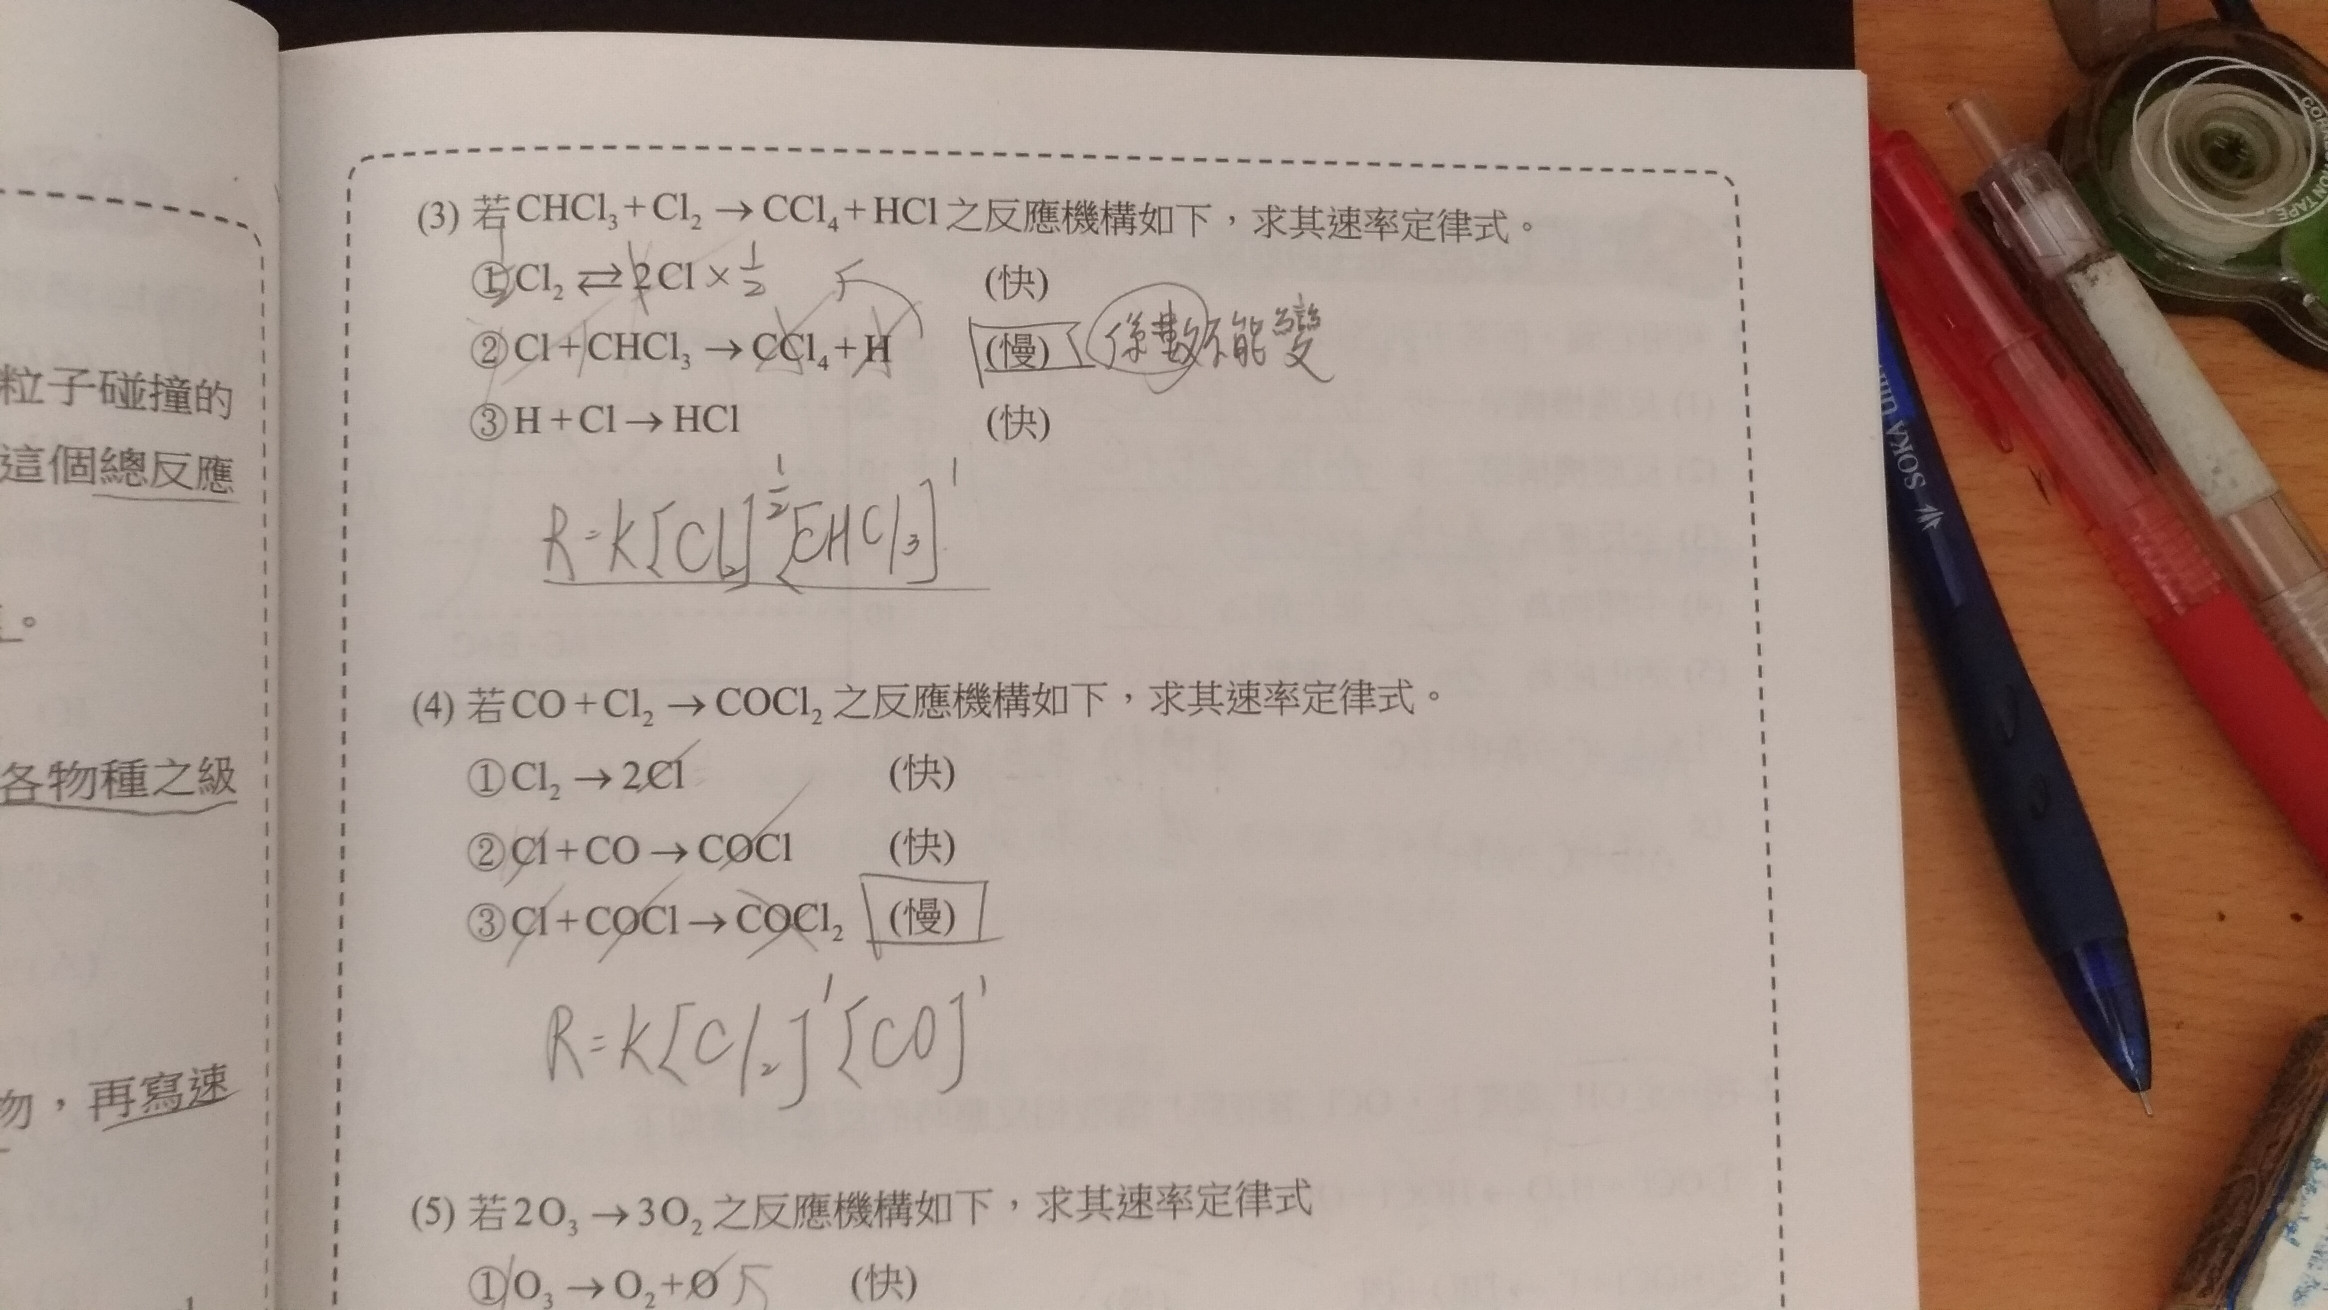 粒子碰撞的
這個總反應
。
各物種之級
物，再寫速
(3) 若CHCl₃+Cl₂→CCl₄+HCl之反應機構如下，求其速率定律式。
①Cl₂⇄2Cl×1/2 (快)
②Cl+CHCl₃→CCl₄+H (慢) 係數不能變
③H+Cl→HCl (快)
R=K[Cl₂]^1/2[CHCl₃]^1
(4) 若CO+Cl₂→COCl₂之反應機構如下，求其速率定律式。
①Cl₂→2Cl (快)
②Cl+CO→COCl (快)
③Cl+COCl→COCl₂ (慢)
R=K[Cl₂]^1[CO]^1
(5) 若2O₃→3O₂之反應機構如下，求其速率定律式
①O₃→O₂+O (快)
SOKA UNI